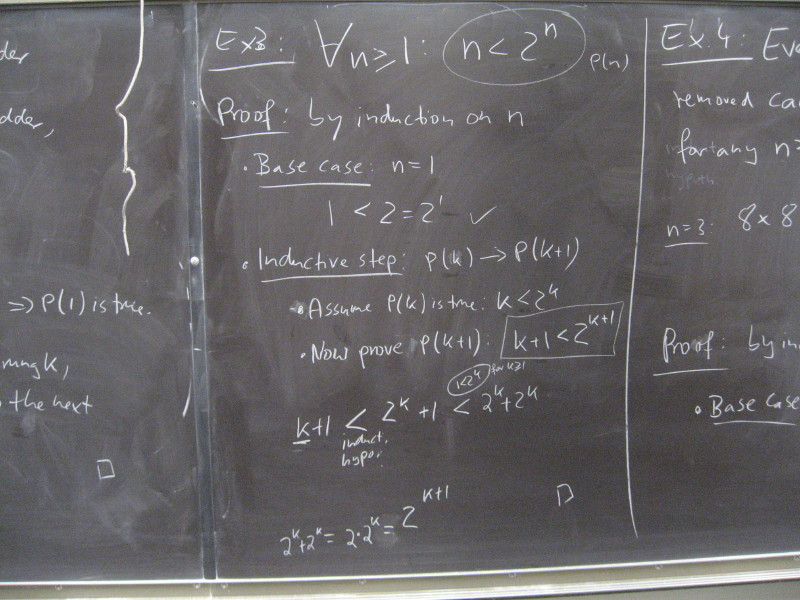 dder,
=> P(1) is true.
k,
the next
□
Ex3: ∀n≥1: n < 2ⁿ P(n)
Proof: by induction on n
• Base case: n=1
1 < 2 = 2¹ ✓
• Inductive step: P(k) → P(k+1)
• Assume P(k) is true: k < 2ᵏ
• Now prove P(k+1): k+1 < 2ᵏ⁺¹
1<2ᵏ for k≥1
k+1 < 2ᵏ+1 < 2ᵏ+2ᵏ
induct.
hypo.
2ᵏ+2ᵏ = 2·2ᵏ = 2ᵏ⁺¹
□
Ex.4: Eve
removed ca
for any n=
hypoth.
n=3: 8×8
Proof: by in
• Base case